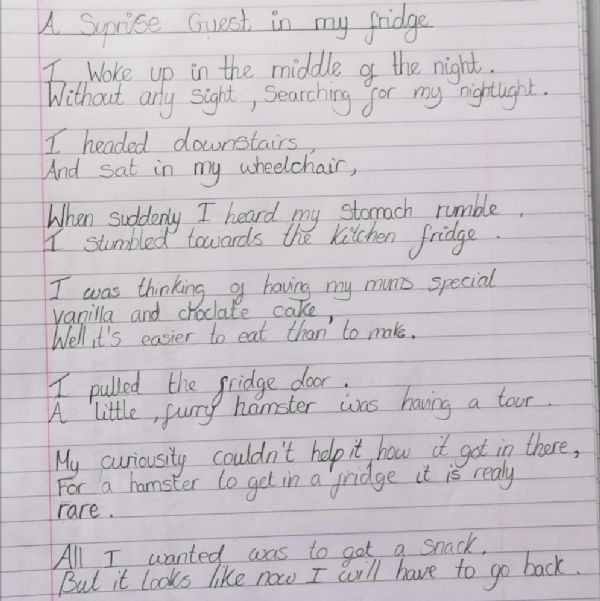 A Suprise Guest in my fridge
I Woke up in the middle of the night.
Without any sight, Searching for my nightlight.
I headed downstairs,
And sat in my wheelchair,
When suddenly I heard my stomach rumble,
I stumbled towards the kitchen fridge.
I was thinking of having my mums special
vanilla and choclate cake,
Well it's easier to eat than to make.
I pulled the fridge door.
A little, furry hamster was having a tour.
My curiousity couldn't help it how it got in there,
For a hamster to get in a fridge it is realy
rare.
All I wanted was to get a snack.
But it looks like now I will have to go back.